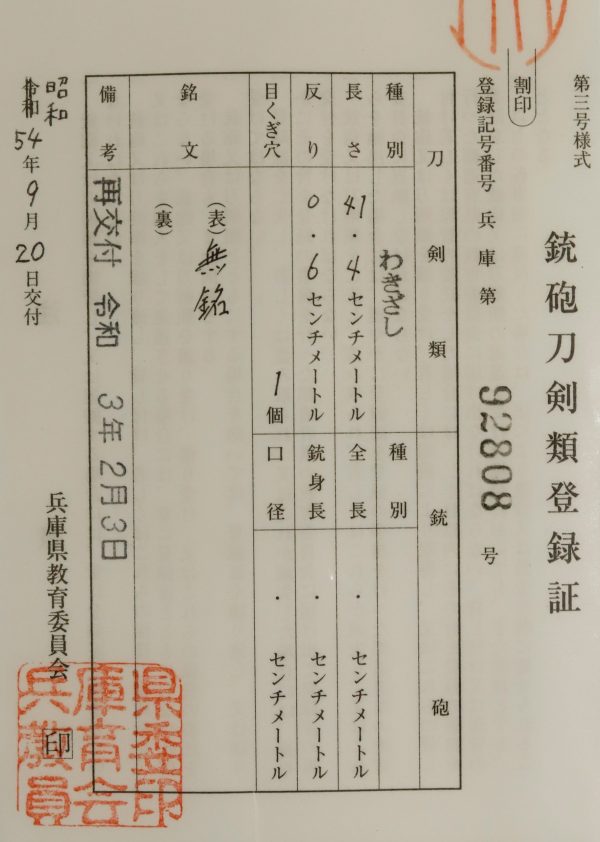 第三号様式
銃砲刀剣類登録証
割印
登録記号番号 兵庫第 92808 号
刀剣類
銃砲
種別 わきざし
種別
長さ 41.4センチメートル
全長 ・ センチメートル
反り 0.6センチメートル
銃身長 ・ センチメートル
目くぎ穴 1個
口径 ・ センチメートル
銘文
(表) 無銘
(裏)
備考 再交付 令和 3年2月3日
昭和
令和54年9月20日交付
兵庫県教育委員会 印
兵庫県教育委員会印